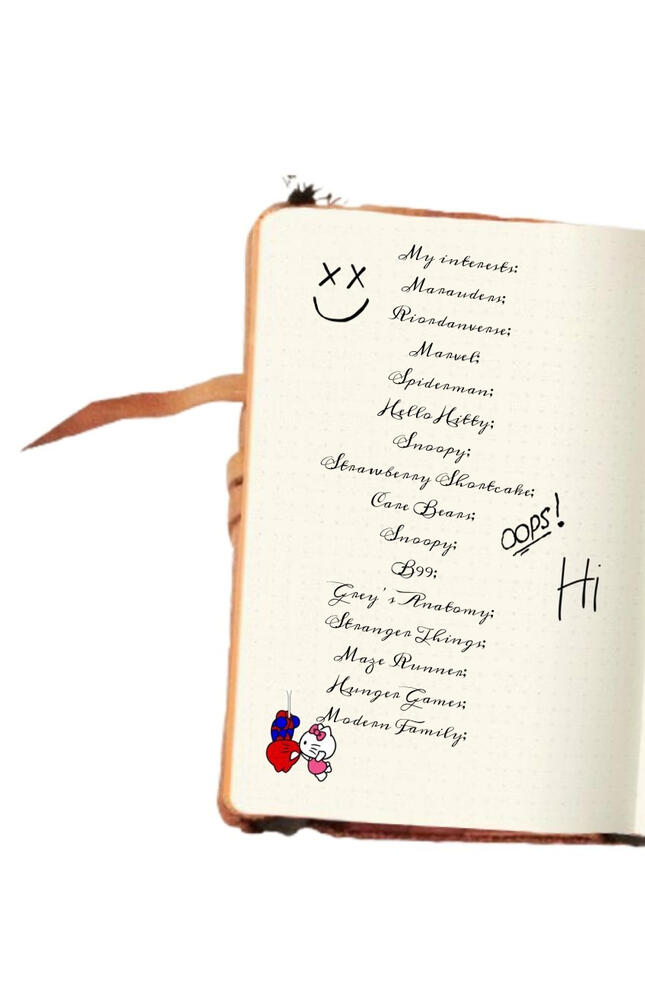 My interests:
Marauders;
Riordanverse;
Marvel;
Spiderman;
Hello Kitty;
Snoopy;
Strawberry Shortcake;
Care Bears;
OOPS!
Snoopy;
B99;
Hi
Grey's Anatomy;
Stranger Things;
Maze Runner;
Hunger Games;
Modern Family;